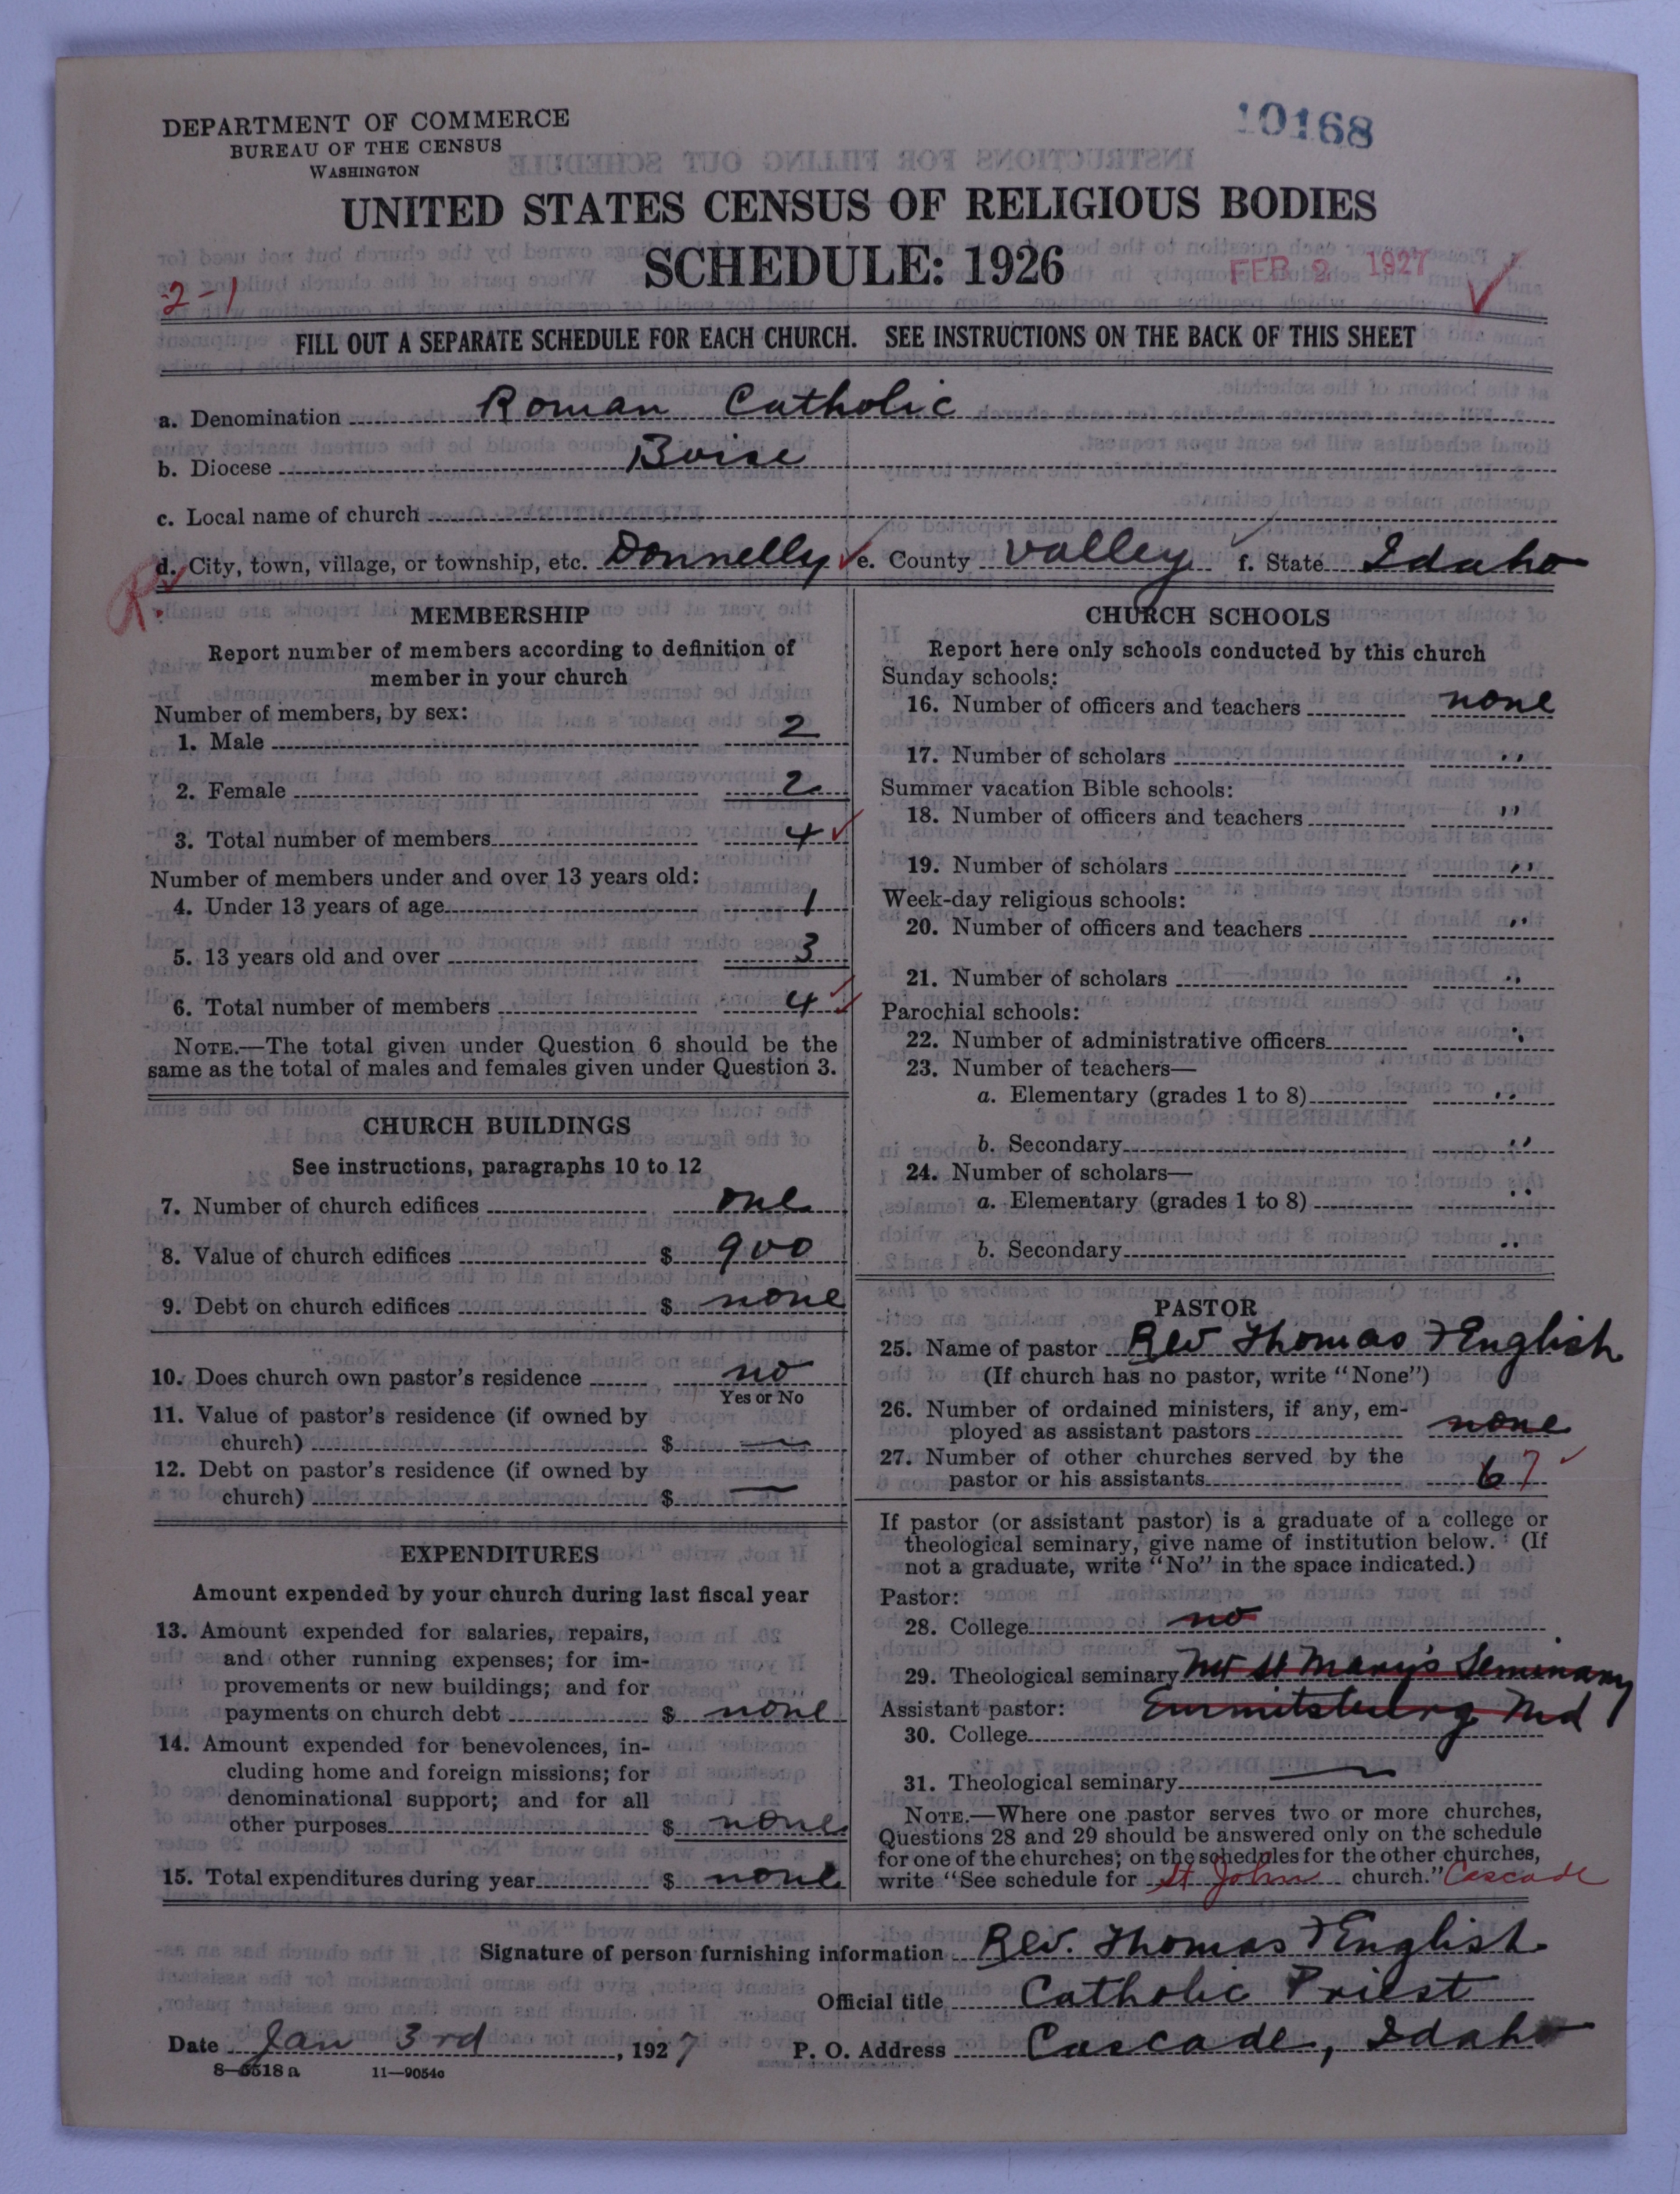 DEPARTMENT OF COMMERCE
BUREAU OF THE CENSUS
WASHINGTON
10168
UNITED STATES CENSUS OF RELIGIOUS BODIES
SCHEDULE: 1926
FEB 2 1927
2-1
FILL OUT A SEPARATE SCHEDULE FOR EACH CHURCH. SEE INSTRUCTIONS ON THE BACK OF THIS SHEET
a. Denomination Roman Catholic
b. Diocese Boise
c. Local name of church
d. City, town, village, or township, etc. Donnelly e. County Valley f. State Idaho
R.
MEMBERSHIP
Report number of members according to definition of
member in your church
Number of members, by sex:
1. Male 2
2. Female 2
3. Total number of members 4
Number of members under and over 13 years old:
4. Under 13 years of age 1
5. 13 years old and over 3
6. Total number of members 4
NOTE.—The total given under Question 6 should be the
same as the total of males and females given under Question 3.
CHURCH BUILDINGS
See instructions, paragraphs 10 to 12
7. Number of church edifices one
8. Value of church edifices $ 900
9. Debt on church edifices $ none
10. Does church own pastor's residence no
Yes or No
11. Value of pastor's residence (if owned by
church) $ —
12. Debt on pastor's residence (if owned by
church) $ —
EXPENDITURES
Amount expended by your church during last fiscal year
13. Amount expended for salaries, repairs,
and other running expenses; for im-
provements or new buildings; and for
payments on church debt $ none
14. Amount expended for benevolences, in-
cluding home and foreign missions; for
denominational support; and for all
other purposes $ none
15. Total expenditures during year $ none
CHURCH SCHOOLS
Report here only schools conducted by this church
Sunday schools:
16. Number of officers and teachers none
17. Number of scholars "
Summer vacation Bible schools:
18. Number of officers and teachers "
19. Number of scholars "
Week-day religious schools:
20. Number of officers and teachers "
21. Number of scholars "
Parochial schools:
22. Number of administrative officers "
23. Number of teachers—
a. Elementary (grades 1 to 8) "
b. Secondary "
24. Number of scholars—
a. Elementary (grades 1 to 8) "
b. Secondary "
PASTOR
25. Name of pastor Rev Thomas F English
(If church has no pastor, write "None")
26. Number of ordained ministers, if any, em-
ployed as assistant pastors none
27. Number of other churches served by the
pastor or his assistants 6 7
If pastor (or assistant pastor) is a graduate of a college or
theological seminary, give name of institution below. (If
not a graduate, write "No" in the space indicated.)
Pastor:
28. College no
29. Theological seminary Mt St Mary's Seminary
Assistant pastor: Emmitsburg Md
30. College
31. Theological seminary —
NOTE.—Where one pastor serves two or more churches,
Questions 28 and 29 should be answered only on the schedule
for one of the churches; on the schedules for the other churches,
write "See schedule for St John church." Cascade
Signature of person furnishing information Rev. Thomas F English
Official title Catholic Priest
Date Jan 3rd, 1927 P. O. Address Cascade, Idaho
8—5518 a 11—9054c